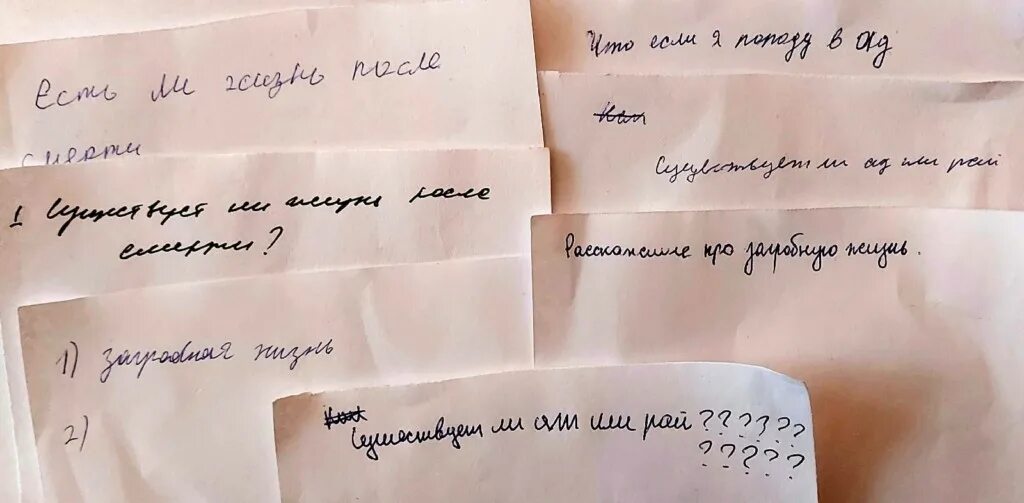 Есть ли жизнь после
смерти
I Существует ли жизнь после
смерти?
1) Загробная жизнь
2)
Что если я попаду в ад
Существует ли ад или рай
Расскажите про загробную жизнь.
Существует ли ят или рай ?????
?????